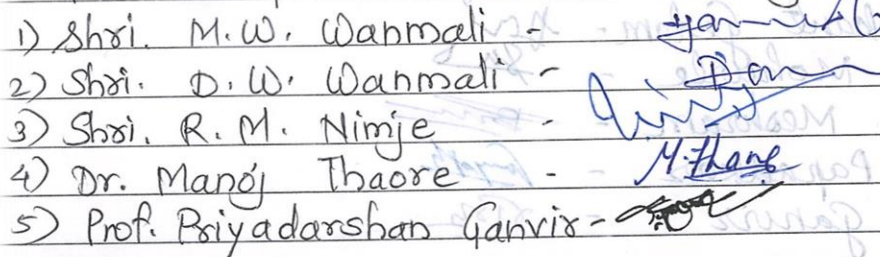 1) Shri. M.W. Wanmali -
2) Shri. D.W. Wanmali -
3) Shri. R.M. Nimje -
4) Dr. Manoj Thaore - M.Thaore
5) Prof. Priyadarshan Ganvir -